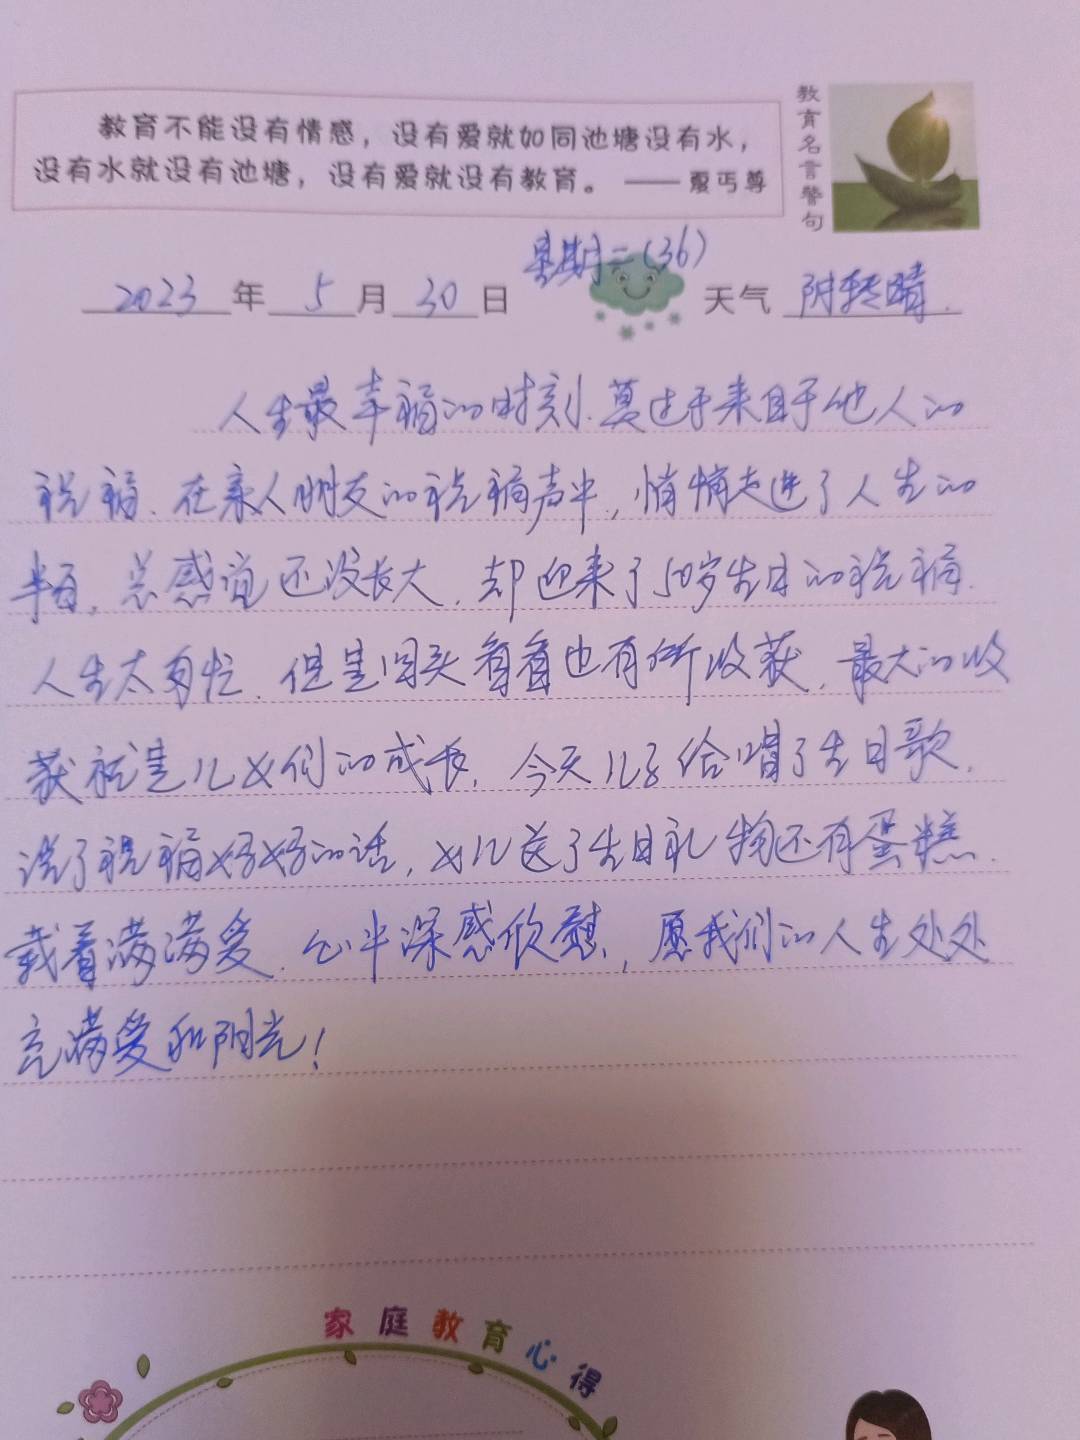 教育不能没有情感，没有爱就如同池塘没有水，
没有水就没有池塘，没有爱就没有教育。 —— 夏丏尊
教育名言警句
星期二(36)
2023年5月30日 天气 阴转晴.
人生最幸福的时刻.莫过于来自于他人的
祝福.在亲人朋友的祝福声中,悄悄走进了人生的
半百.总感觉还没长大.却迎来了50岁生日的祝福.
人生太匆忙.但是回头看看也有所收获.最大的收
获就是儿女们的成长.今天儿子给唱了生日歌.
说了祝福妈妈的话,女儿送了生日礼物还有蛋糕.
载着满满爱.心中深感欣慰,愿我们的人生处处
充满爱和阳光!
家庭教育心得